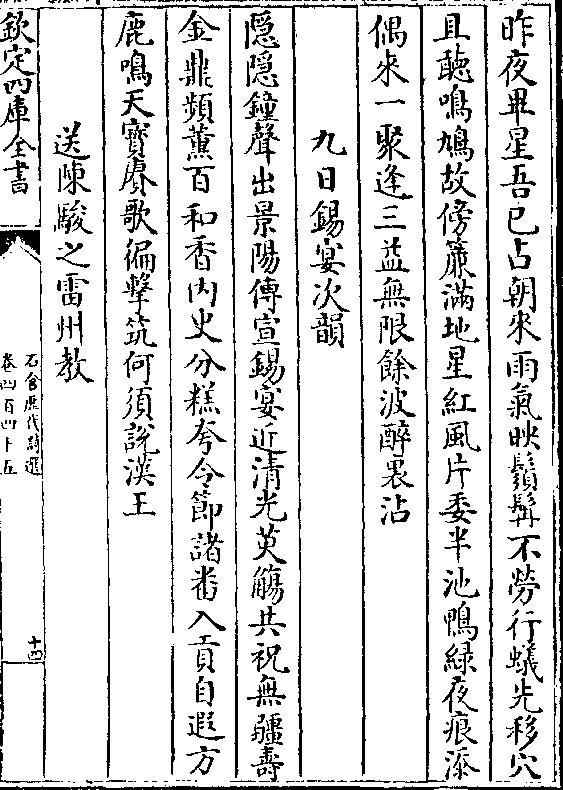 昨夜畢星吾已占朝來雨氣映鬚髯不勞行蟻先移穴
且聽鳴鳩故傍簷滿地星紅風片委半池鴨緑夜痕添
偶來一聚逢三益無限餘波醉裏沾
九日錫宴次韻
隠隠鐘聲出景陽傳宣錫宴近清光英觴共祝無疆壽
金鼎頻薫百和香内史分糕夸令節諸番入貢自遐方
鹿鳴天寶賡歌徧擊筑何須說漢王
送陳駿之雷州教
欽定四庫全書
石倉歷代詩選
卷四百四十五
十四